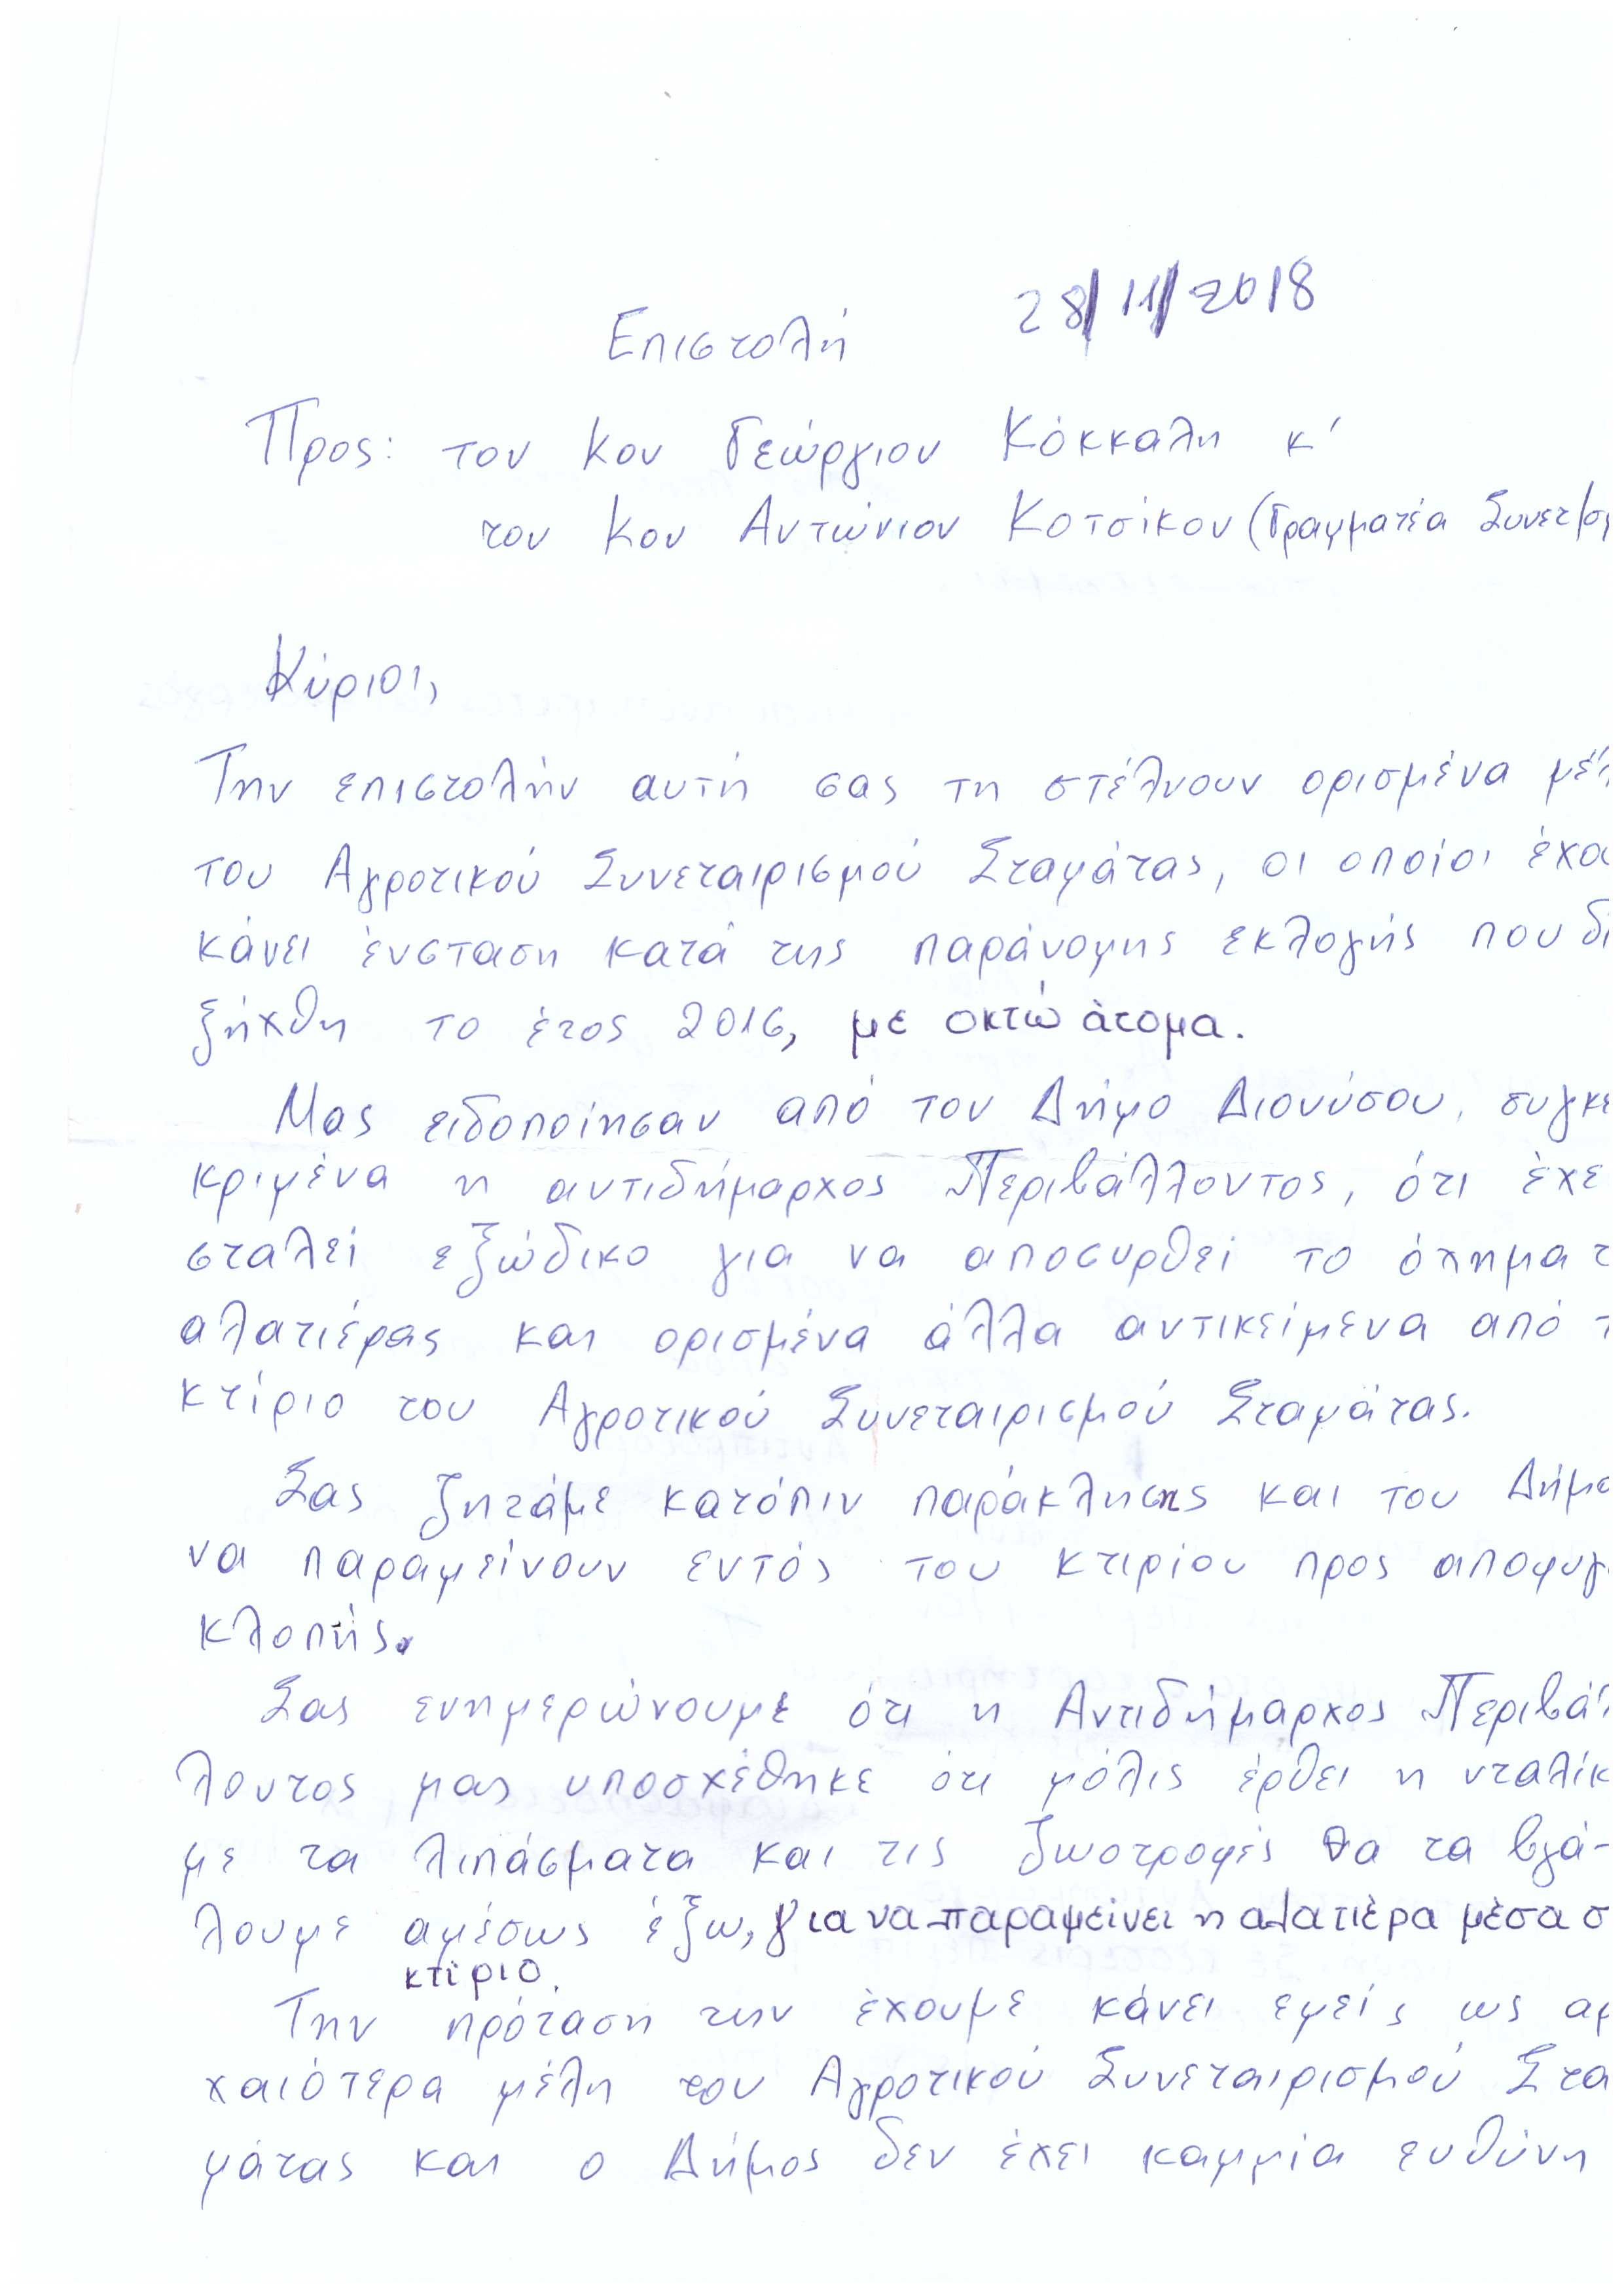 28/11/2018
Επιστολή
Προς: τον κον Γεώργιον Κόκκαλη κ'
τον κον Αντώνιον Κοτσίκον (Γραμματέα Συνετ/σμ
Κύριοι,
Την επιστολήν αυτή σας τη στέλνουν ορισμένα μέλ
του Αγροτικού Συνεταιρισμού Σταμάτας, οι οποίοι έχου
κάνει ένσταση κατά της παράνομης εκλογής που δι
ξήχθη το έτος 2016, με οκτώ άτομα.
Μας ειδοποίησαν από τον Δήμο Διονύσου, συγκε
κριμένα η αντιδήμαρχος Περιβάλλοντος, ότι έχε
σταλεί εξώδικο για να αποσυρθεί το όχημα τ
αλατιέρας και ορισμένα άλλα αντικείμενα από τ
κτίριο του Αγροτικού Συνεταιρισμού Σταμάτας.
Σας ζητάμε κατόπιν παράκλησης και του Δήμο
να παραμείνουν εντός του κτιρίου προς αποφυγ
κλοπής.
Σας ενημερώνουμε ότι η Αντιδήμαρχος Περιβάλ
λοντος μας υποσχέθηκε ότι μόλις έρθει η νταλίκ
με τα λιπάσματα και τις ζωοτροφές θα τα βγά-
λουμε αμέσως έξω, για να παραμείνει η αλατιέρα μέσα σ
κτίριο.
Την πρόταση την έχουμε κάνει εμείς ως αρ
χαιότερα μέλη του Αγροτικού Συνεταιρισμού Στα
μάτας και ο Δήμος δεν έχει καμμία ευθύνη